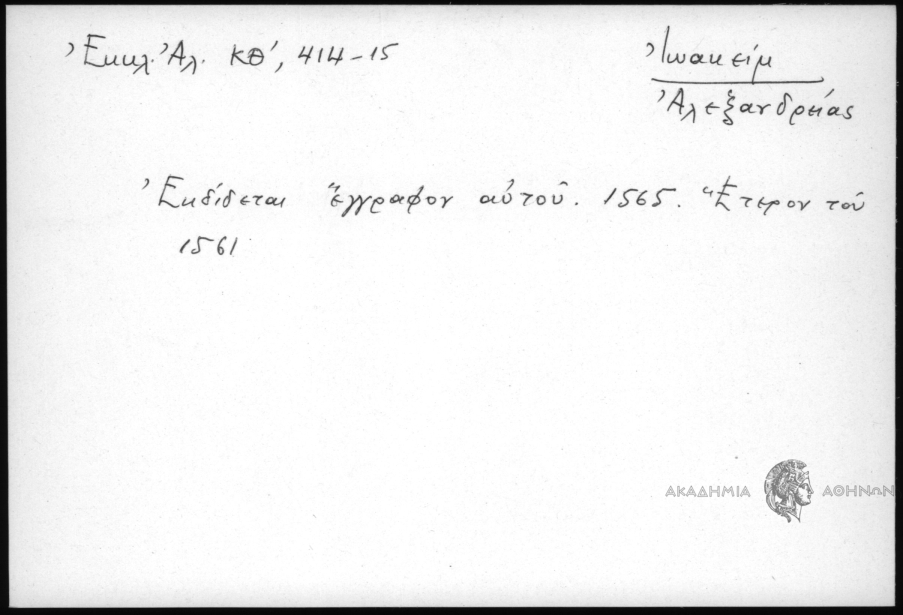 Ἐκκλ. Ἀλ. ΚΘ', 414-15
Ἰωακείμ
Ἀλεξανδρείας
Ἐκδίδεται ἔγγραφον αὐτοῦ. 1565. Ἕτερον τοῦ
1561
ΑΚΑΔΗΜΙΑ ΑΘΗΝΩΝ